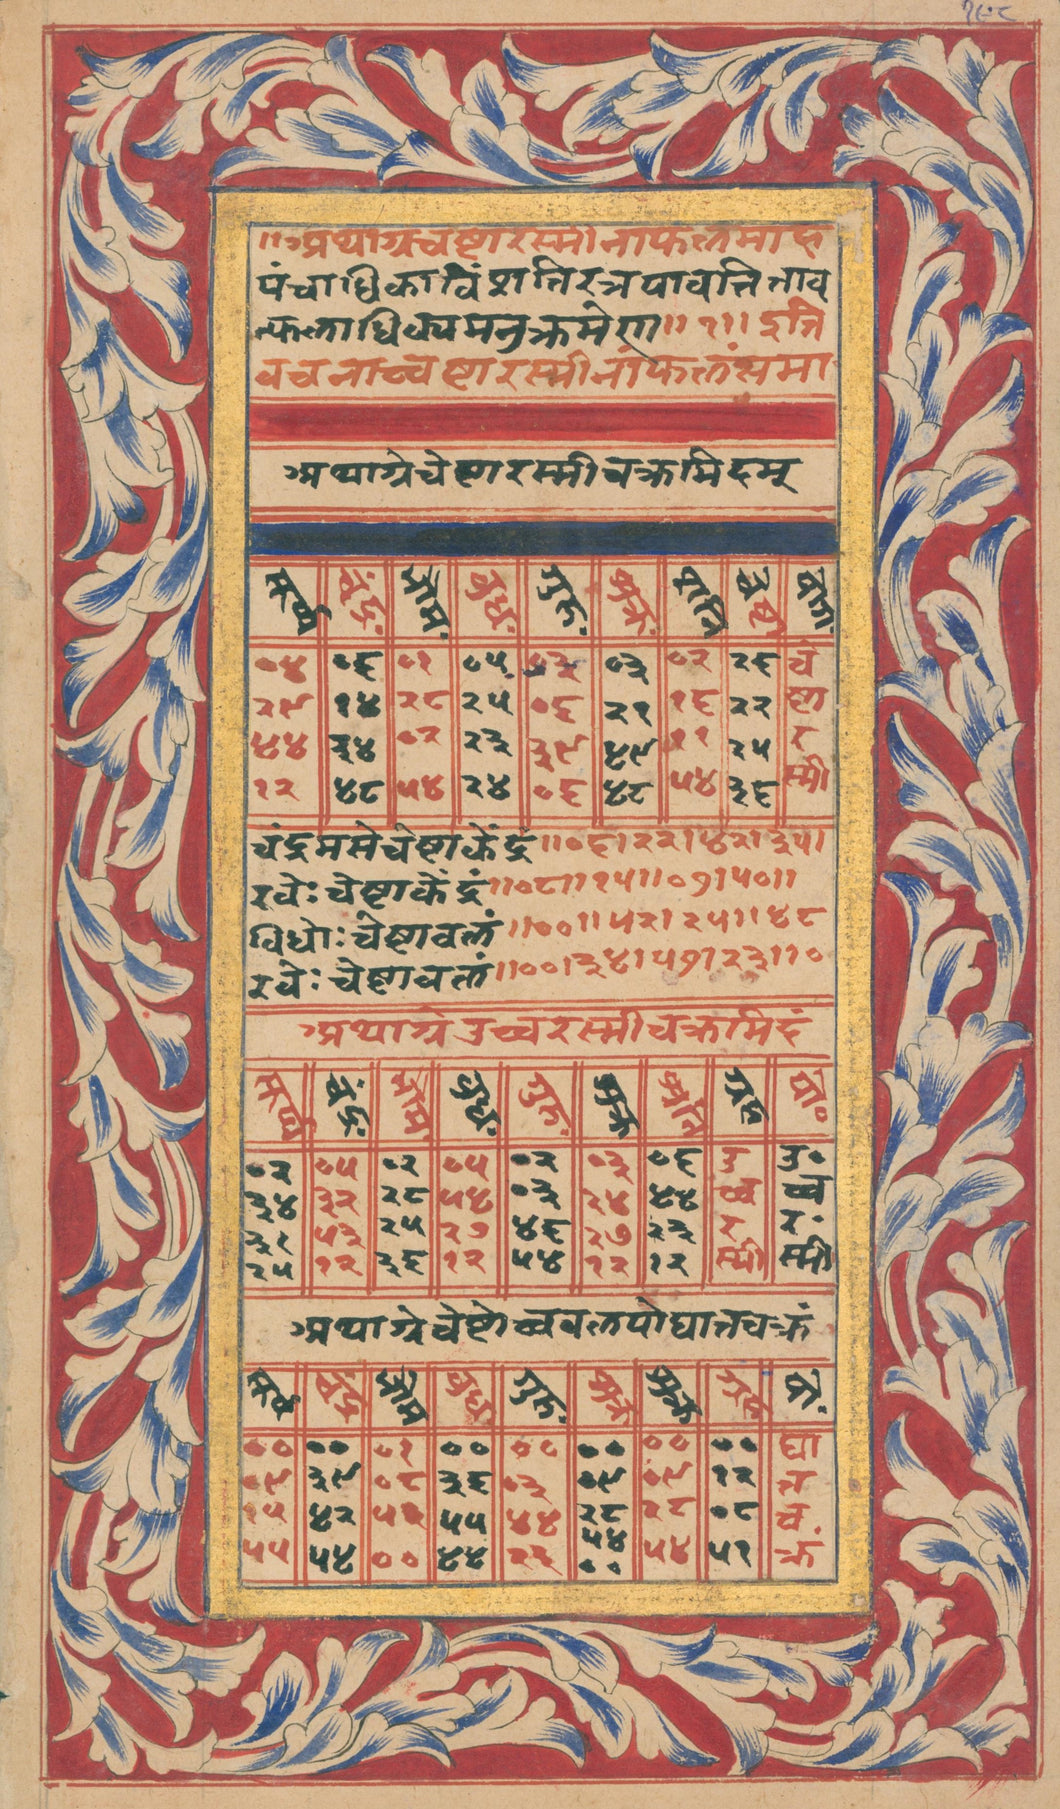 १९८
॥अथाग्रचेष्टारस्मीनाफलमाह
पंचाधिकाविंशत्तिरत्रपावत्तित्ताव
त्फलाधिक्यमनुक्रमेण॥१॥इति
वचनाच्चेष्टारस्मीनांफलंसमा
अथाग्रेचेष्टारस्मीचक्रमिदम्
सूर्य चंद्र. भौम. बुध. गुरु. शुक्र. शनि
०४ ०६ ०१ ०५ ०२ ०३ ०२ २६ चे
२९ १४ २८ २५ ०६ २१ १६ २२ ष्टा
४४ ३४ ०२ २३ ३९ ४९ ११ २५ र
१२ ४८ ५४ २४ ०६ ४८ ५४ ३६ स्मी
चंद्रमसेचेष्टाकेंद्रं॥०६।२२।४२।३५।
रवेःचेष्टाकेंद्रं॥०८॥१५॥०७।५०॥
विधोःचेष्टावलं॥००॥५२।२५॥४८
रवेःचेष्टावलं॥००।३४।५७।२३॥०
अथाग्रेउच्चरस्मीचक्रमिदं
सूर्य चंद्र. भौम. बुध. गुरु. शुक्र शनि ग्रह यो०
०२ ०५ ०२ ०५ ०२ ०३ ०६ उ उ०
३४ ३२ २८ ५४ ०३ २४ ४४ च्च च्च
३१ ५३ २५ २७ ४६ २७ २३ र रं
२५ १२ ३६ १२ ५४ १२ १२ स्मी स्मी
अथाग्रेचेष्टोच्चवलपोर्घातचक्रं
सूर्य चंद्र भौम बुध गुरु. शुक्र शुक्र ग्रह यो.
०० ०० ०१ ०० ०० ०० ०० ०० घा
०९ ३९ ०८ ३६ ०३ ०९ ०९ १२ त
१५ ४२ ५१ ५५ ४४ २८ २८ ०८ च
५५ ५४ ०० ४४ २६ ५४ ५४ ५१ क्रं
००